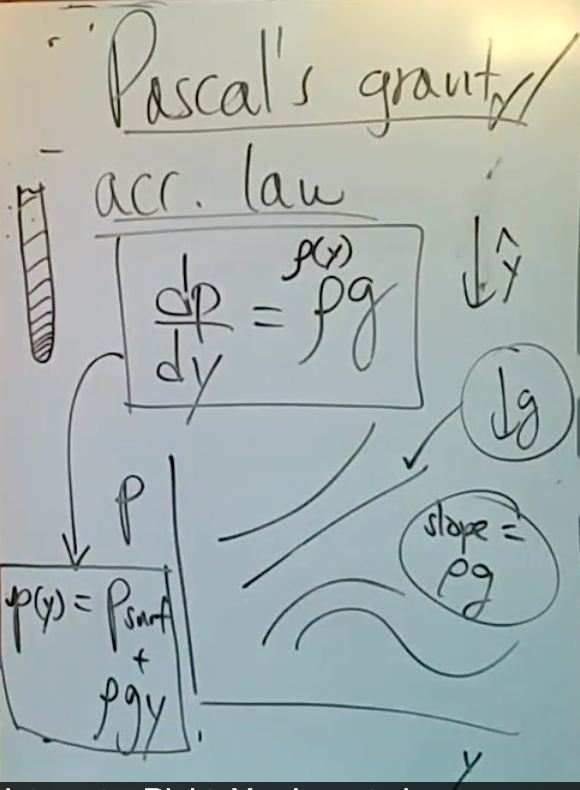 Pascal's gravity
acc. law
ρ(y)
dp/dy = ρg
↓ŷ
↓g
p
slope =
ρg
p(y) = Psurf
+
ρgy
y